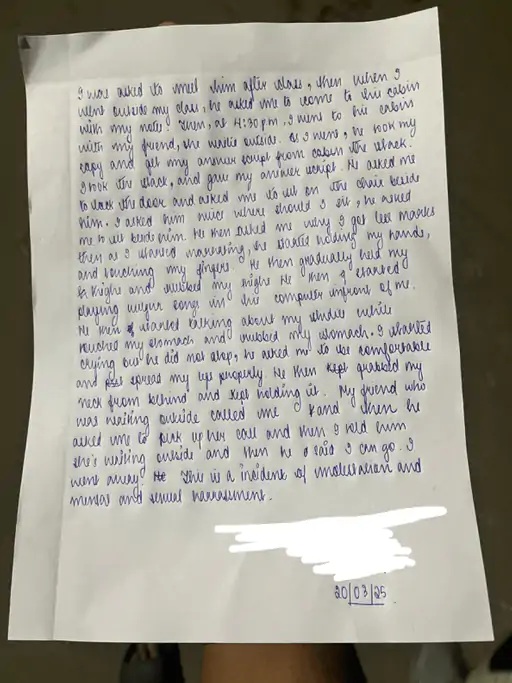 I was asked to meet him after class, then when I
went outside my class, he asked me to come to his cabin
with my notes. Then, at 4:30 pm, I went to his cabin
with my friend, she waited outside. As I went, he took my
copy and get my answer script from cabin the stack.
I took the stack, and gave my answer script. He asked me
to lock the door and asked me to sit on the chair beside
him. I asked him twice where should I sit, he asked
me to sit beside him. He then asked me why I got less marks
then as I started narrating, he started holding my hands,
and touching my fingers. He then gradually held my
thighs and rubbed my thighs. He then started
playing vulgar songs in his computer infront of me.
He then started talking about my studies while
touched my stomach and rubbed my stomach. I started
crying but he did not stop, he asked me to be comfortable
and spread my legs properly. He then kept grabbed my
neck from behind and kept holding it. My friend who
was waiting outside called me and then he
asked me to pick up her call and then I told him
she's waiting outside and then he said I can go. I
went away. This is a incident of molestation and
mental and sexual harrasment.
20/03/25